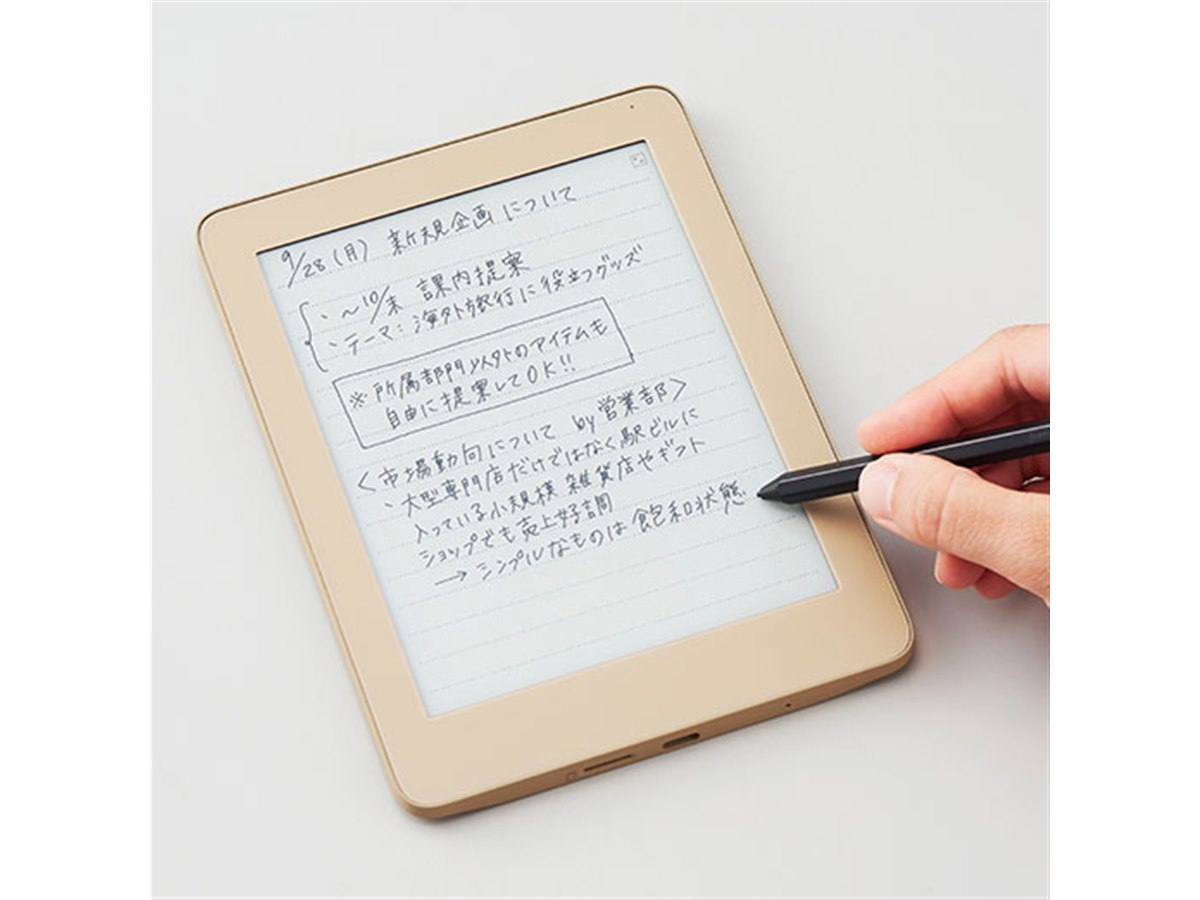 9/28(月) 新規企画について
・〜10/末 課内提案
・テーマ：海外旅行に役立つグッズ
※所属部門以外のアイテムも
自由に提案してOK!!
<市場動向について by営業部>
・大型専門店だけではなく駅ビルに
入っている小規模雑貨店やギフト
ショップでも売上好調
→シンプルなものは飽和状態